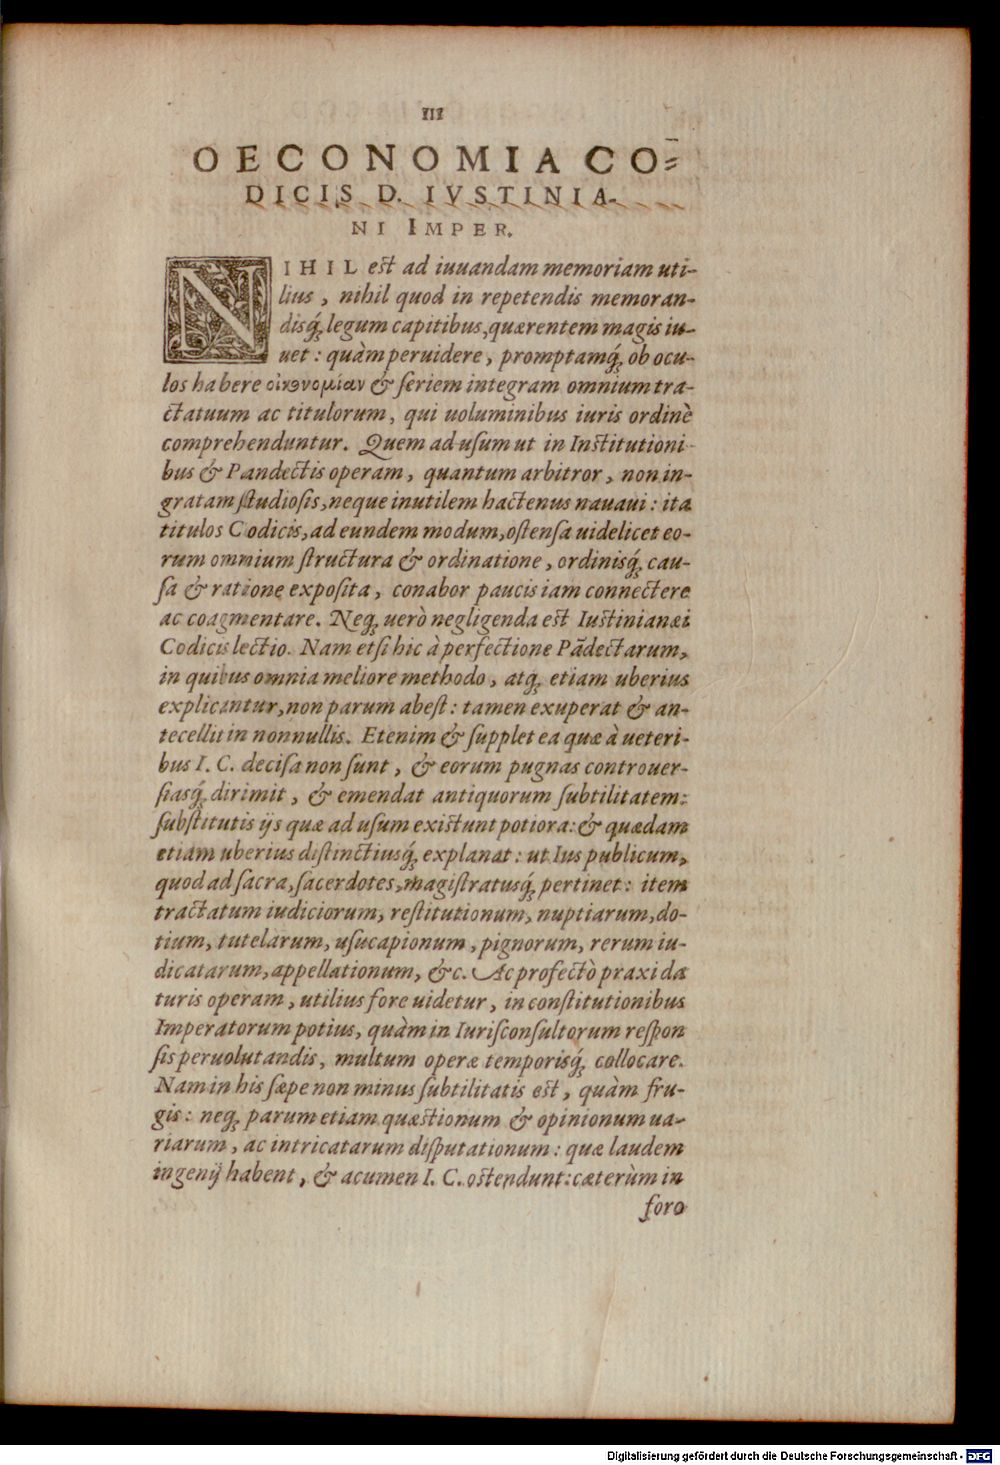 III
OECONOMIA CO⸗
DICIS D. IVSTINIA-
NI IMPER.
NIHIL est ad iuuandam memoriam uti-
lius, nihil quod in repetendis memoran-
disq́; legum capitibus, quærentem magis iu-
uet: quàm peruidere, promptamq́; ob ocu-
los habere οἰκονομίαν & seriem integram omnium tra-
ctatuum ac titulorum, qui uoluminibus iuris ordinè
comprehenduntur. Quem ad usum ut in Institutioni-
bus & Pandectis operam, quantum arbitror, non in-
gratam studiosis, neque inutilem hactenus nauaui: ita
titulos Codicis, ad eundem modum, ostensa uidelicet eo-
rum omnium structura & ordinatione, ordinisq́; cau-
sa & ratione exposita, conabor paucis iam connectere
ac coagmentare. Neq; uerò negligenda est Iustinianæi
Codicis lectio. Nam etsi hic à perfectione Pādectarum,
in quibus omnia meliore methodo, atq; etiam uberius
explicantur, non parum abest: tamen exuperat & an-
tecellit in nonnullis. Etenim & supplet ea quæ à ueteri-
bus I. C. decisa non sunt, & eorum pugnas controuer-
siasq́; dirimit, & emendat antiquorum subtilitatem:
substitutis ijs quæ ad usum existunt potiora: & quædam
etiam uberius distinctiusq́; explanat: ut Ius publicum,
quod ad sacra, sacerdotes, magistratusq́; pertinet: item
tractatum iudiciorum, restitutionum, nuptiarum, do-
tium, tutelarum, usucapionum, pignorum, rerum iu-
dicatarum, appellationum, &c. Ac profectò praxi da
turis operam, utilius fore uidetur, in constitutionibus
Imperatorum potius, quàm in Iurisconsultorum respon
sis peruolutandis, multum operæ temporisq́; collocare.
Nam in his sæpe non minus subtilitatis est, quàm fru-
gis: neq; parum etiam quæstionum & opinionum ua-
riarum, ac intricatarum disputationum: quæ laudem
ingenij habent, & acumen I. C. ostendunt: cæterùm in
foro
Digitalisierung gefördert durch die Deutsche Forschungsgemeinschaft - DFG